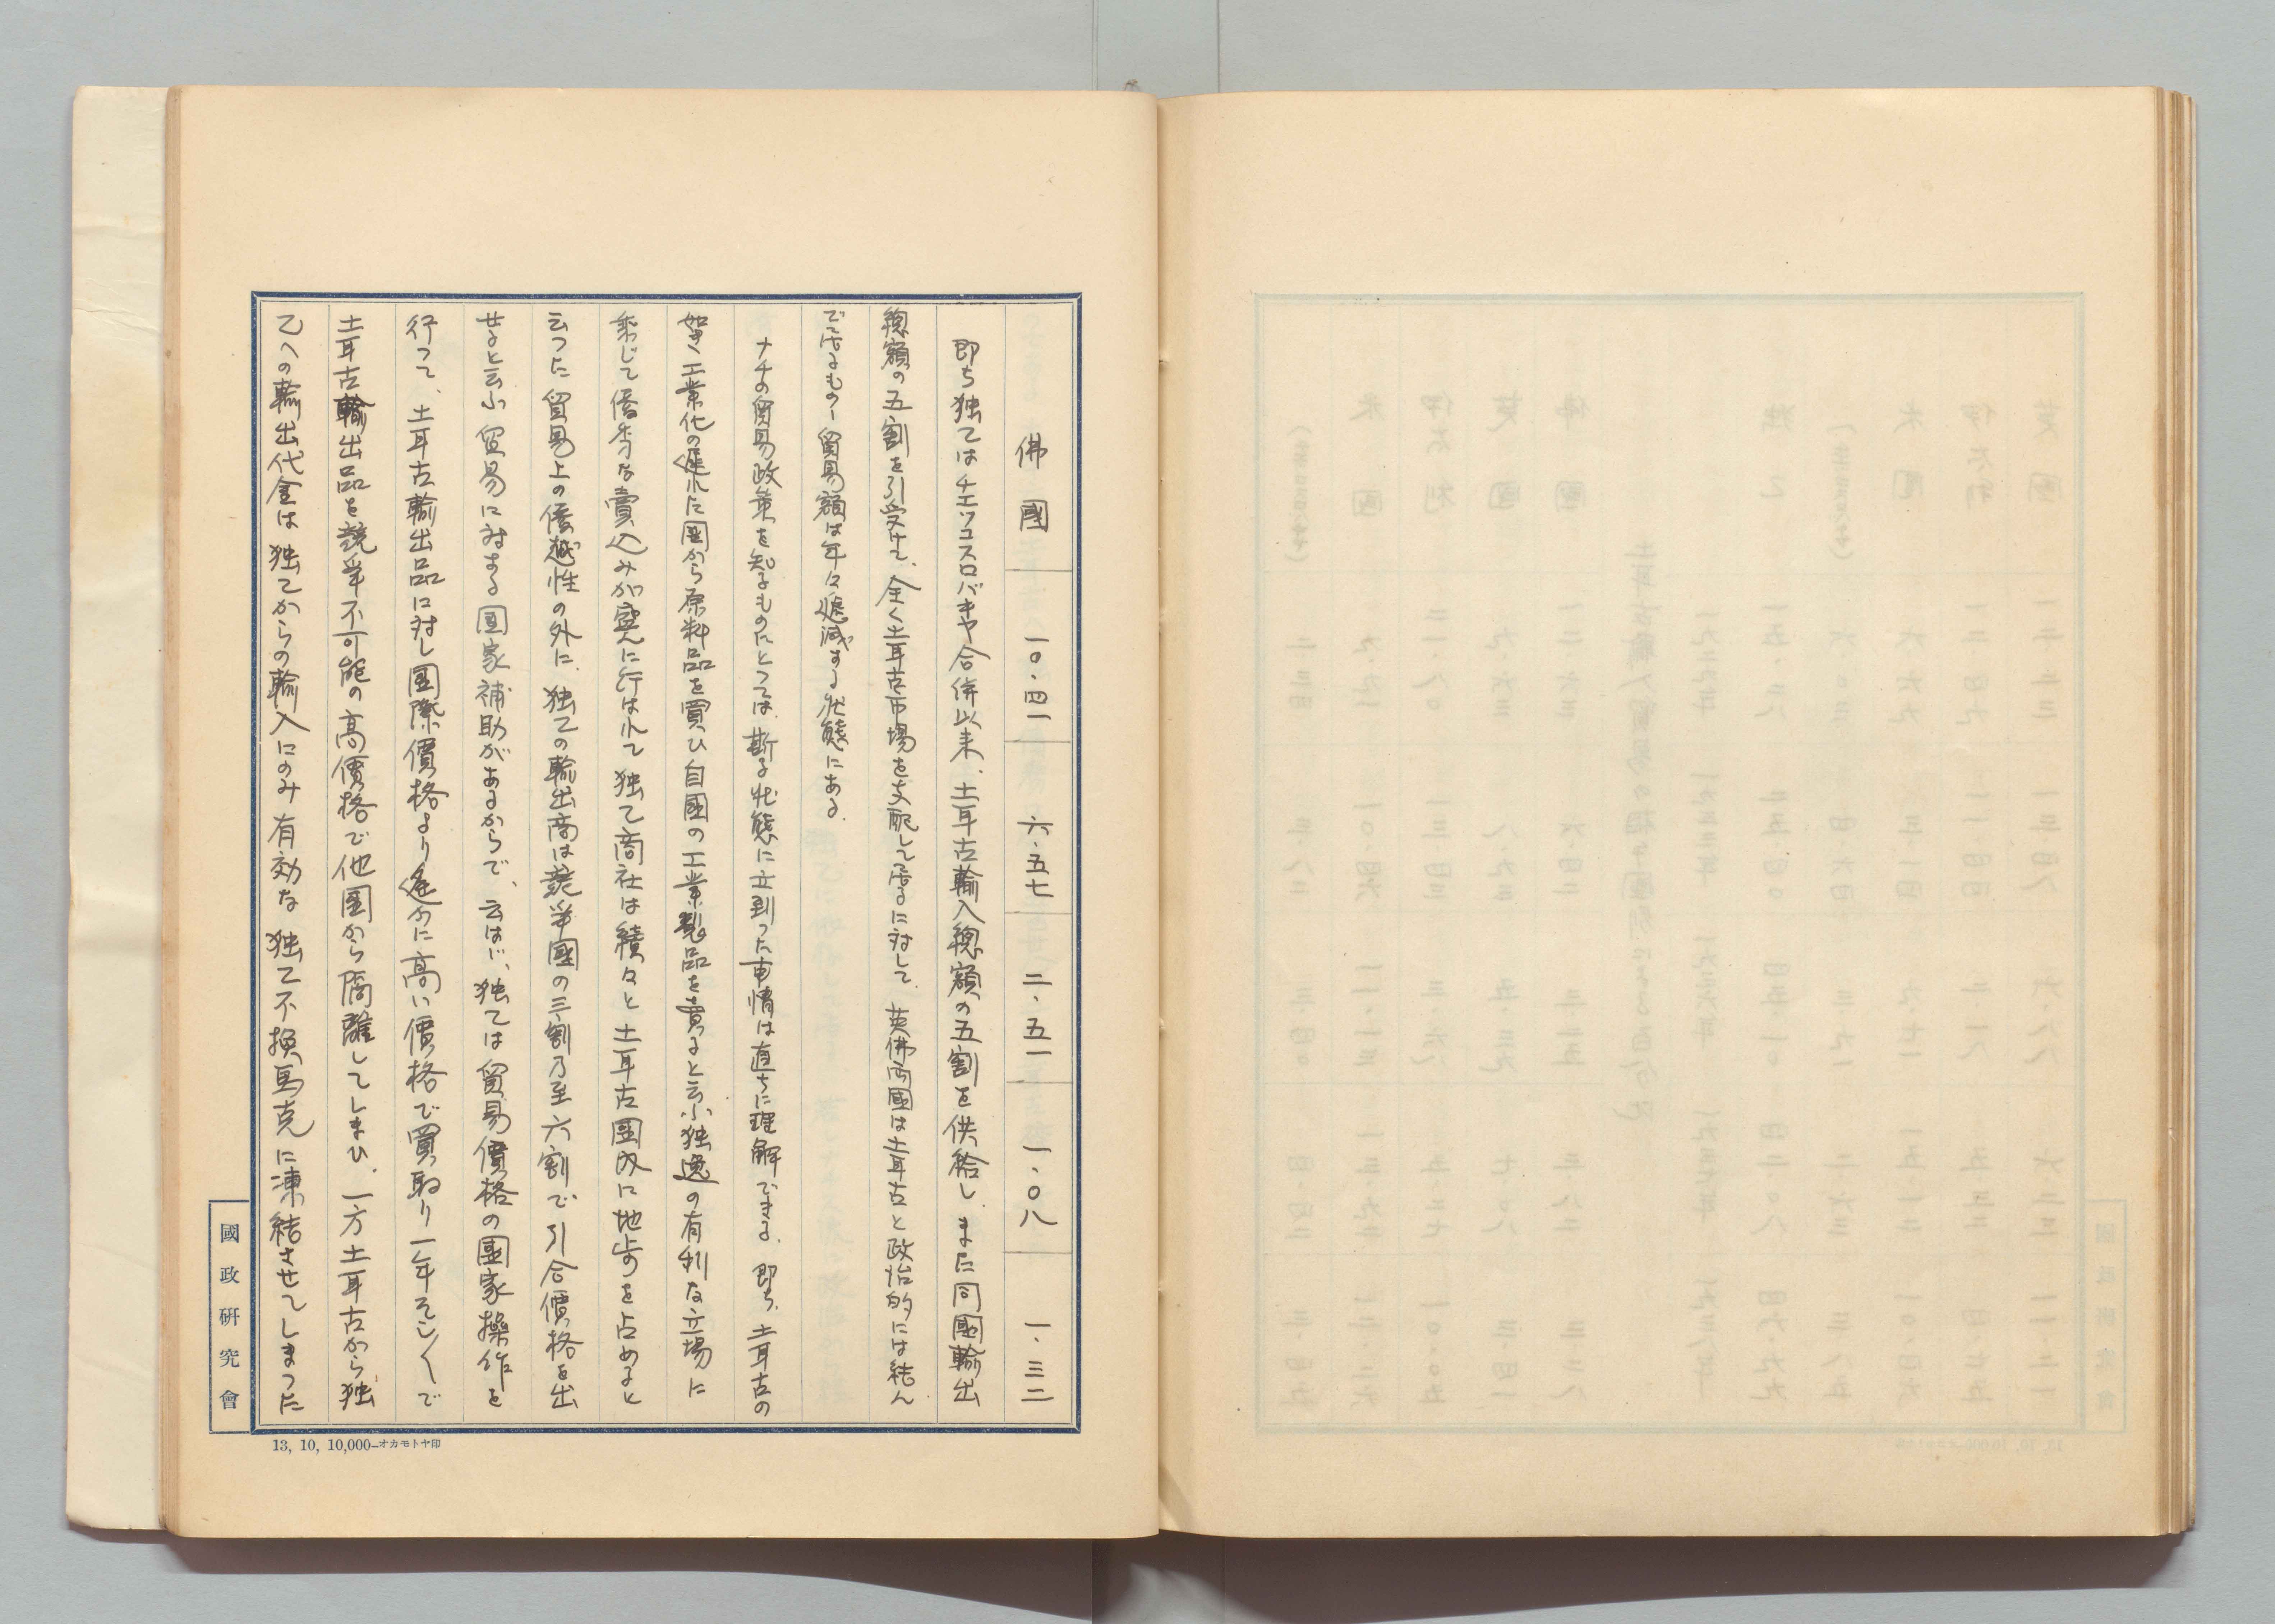 佛國 一〇・四一 六・五七 二・五一 一・〇八 一・三二
即ち独乙はチエツコスロバキヤ合併以来、土耳古輸入總額の五割を供給し、また同國輸出
總額の五割を引受けて、全く土耳古市場を支配して居るに対して、英佛両國は土耳古と政治的には結ん
で居るものゝ貿易額は年々逓減する状態にある。
ナチの貿易政策を知るものにとつては、斯る状態に立到つた事情は直ちに理解できる。即ち、土耳古の
如き工業化の遅れた國から原料品を買ひ自國の工業製品を賣ると云ふ独逸の有利な立場に
乘じて優秀な賣込みが盛んに行はれて独乙商社は續々と土耳古國内に地歩を占めると
云つた貿易上の優越性の外に、独乙の輸出商は競爭國の三割乃至六割で引合價格を出
せると云ふ貿易に対する國家補助があるからで、云はゞ、独乙は貿易價格の國家操作を
行つて、土耳古輸出品に対し國際價格より遙かに高い價格で買取り一年そこ〳〵で
土耳古輸出品を競爭不可能の高價格で他國から隔離してしまひ、一方土耳古から独
乙への輸出代金は独乙からの輸入にのみ有効な独乙不換馬克に凍結させてしまつた
國政研究會
13, 10, 10,000—オカモトヤ印